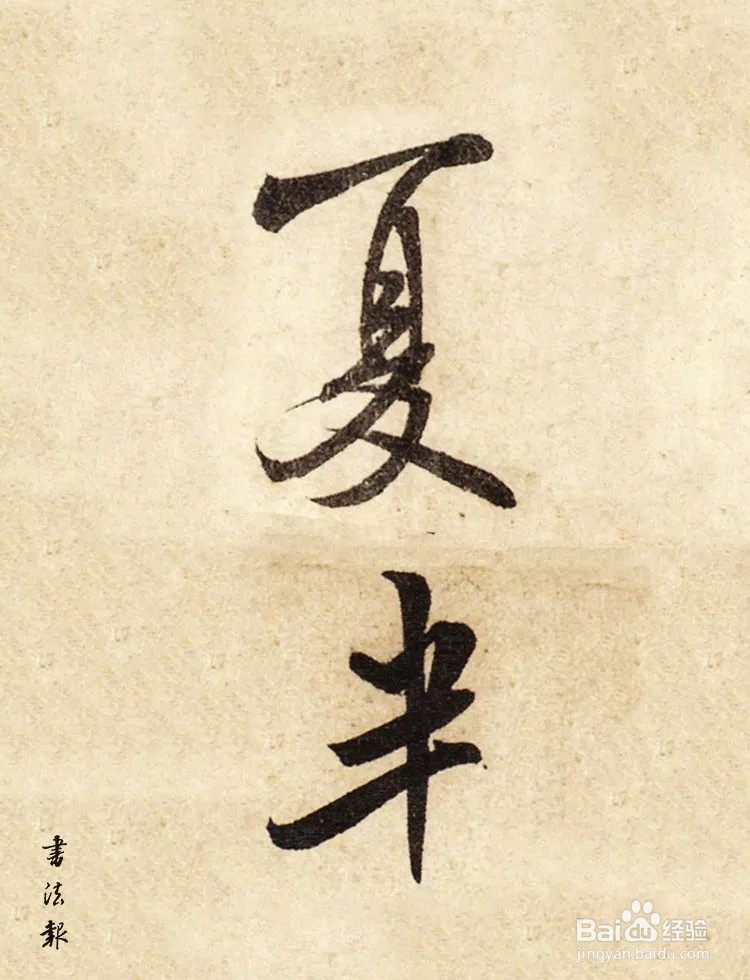 夏半
書法報
Baidu经验
jingyan.baidu.com